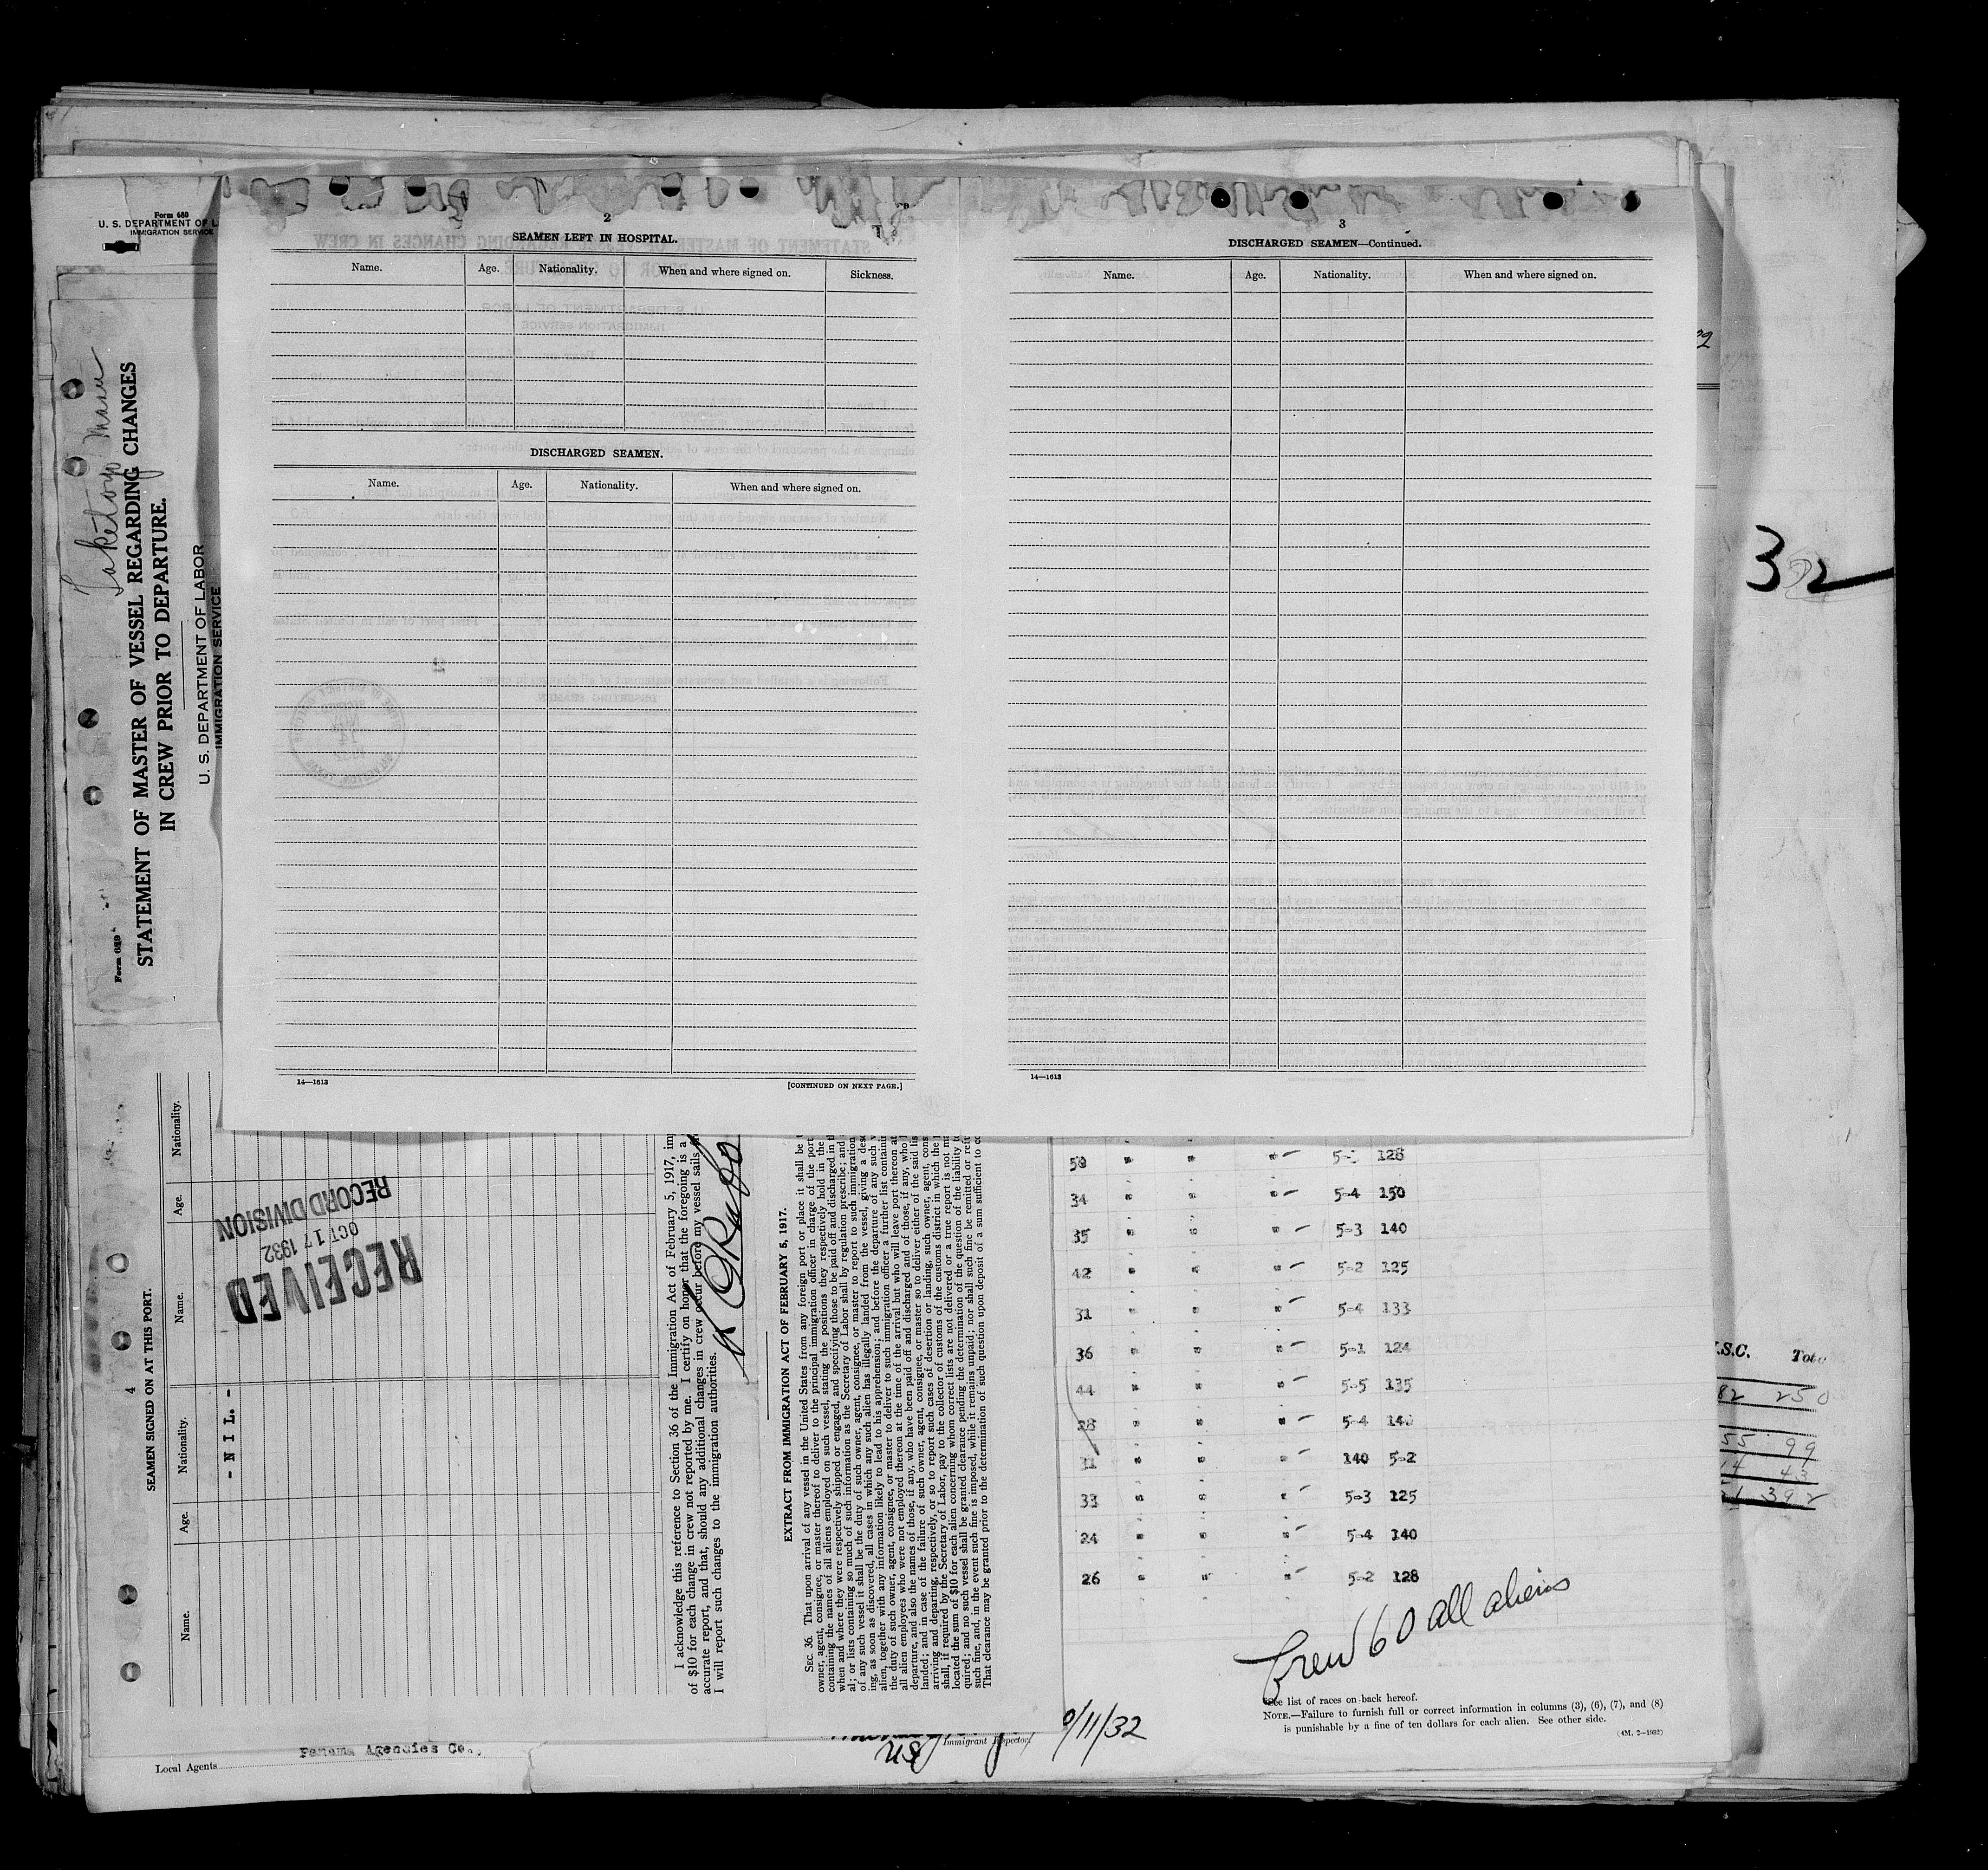 Form 680
U. S. DEPARTMENT OF L
IMMIGRATION SERVICE
2
SEAMEN LEFT IN HOSPITAL.
Name. Age. Nationality. When and where signed on. Sickness.
DISCHARGED SEAMEN.
Name. Age. Nationality. When and where signed on.
14—1613 [CONTINUED ON NEXT PAGE.]
3
DISCHARGED SEAMEN—Continued.
Name. Age. Nationality. When and where signed on.
14—1613
Form 689
Taketoyo Maru
STATEMENT OF MASTER OF VESSEL REGARDING CHANGES
IN CREW PRIOR TO DEPARTURE.
U. S. DEPARTMENT OF LABOR
IMMIGRATION SERVICE
4
SEAMEN SIGNED ON AT THIS PORT.
Name. Age. Nationality. Name. Age. Nationality.
- N I L. -
RECEIVED
OCT 17 1932
RECORD DIVISION
I acknowledge this reference to Section 36 of the Immigration Act of February 5, 1917, im
of $10 for each change in crew not reported by me. I certify on honor that the foregoing is a
accurate report, and that, should any additional changes in crew occur before my vessel sails
I will report such changes to the immigration authorities.
EXTRACT FROM IMMIGRATION ACT OF FEBRUARY 5, 1917.
SEC. 36. That upon arrival of any vessel in the United States from any foreign port or place it shall be
owner, agent, consignee, or master thereof to deliver to the principal immigration officer in charge of the port
containing the names of all aliens employed on such vessel, stating the positions they respectively hold in the
when and where they were respectively shipped or engaged, and specifying those to be paid off and discharged in th
al; or lists containing so much of such information as the Secretary of Labor shall by regulation prescribe; and
of any such vessel it shall be the duty of such owner, agent, consignee, or master to report to such immigration
ing, as soon as discovered, all cases in which any such alien has illegally landed from the vessel, giving a des
alien, together with any information likely to lead to his apprehension; and before the departure of any such v
the duty of such owner, agent, consignee, or master to deliver to such immigration officer a further list containin
all alien employees who were not employed thereon at the time of the arrival but who will leave port thereon at
departure, and also the names of those, if any, who have been paid off and discharged and of those, if any, who
landed; and in case of the failure of such owner, agent, consignee, or master so to deliver either of the said lis
arriving and departing, respectively, or so to report such cases of desertion or landing, such owner, agent, cons
shall, if required by the Secretary of Labor, pay to the collector of customs of the customs district in which the
located the sum of $10 for each alien concerning whom correct lists are not delivered or a true report is not m
quired; and no such vessel shall be granted clearance pending the determination of the question of the liability to
such fine, and, in the event such fine is imposed, while it remains unpaid; nor shall such fine be remitted or refu
That clearance may be granted prior to the determination of such question upon deposit of a sum sufficient to co
Local Agents Panama Agencies Co.,
50 " " " 128
34 " " " 5-4 150
35 " " " 5-3 140
42 " " " 5-2 125
31 " " " 5-4 133
36 " " " 5-1 124
44 " " " 5-5 135
28 " " " 5-4
140 5-2
33 " " " 5-3 125
24 " " " 5-4 140
26 " " " 5-2 128
Crew 60 all aliens
See list of races on back hereof.
NOTE.—Failure to furnish full or correct information in columns (3), (6), (7), and (8)
is punishable by a fine of ten dollars for each alien. See other side.
(4M. 2-1932)
Immigrant Inspector.
/11/32
32
.S.C. Tota
82 250
55 99
14 43
392